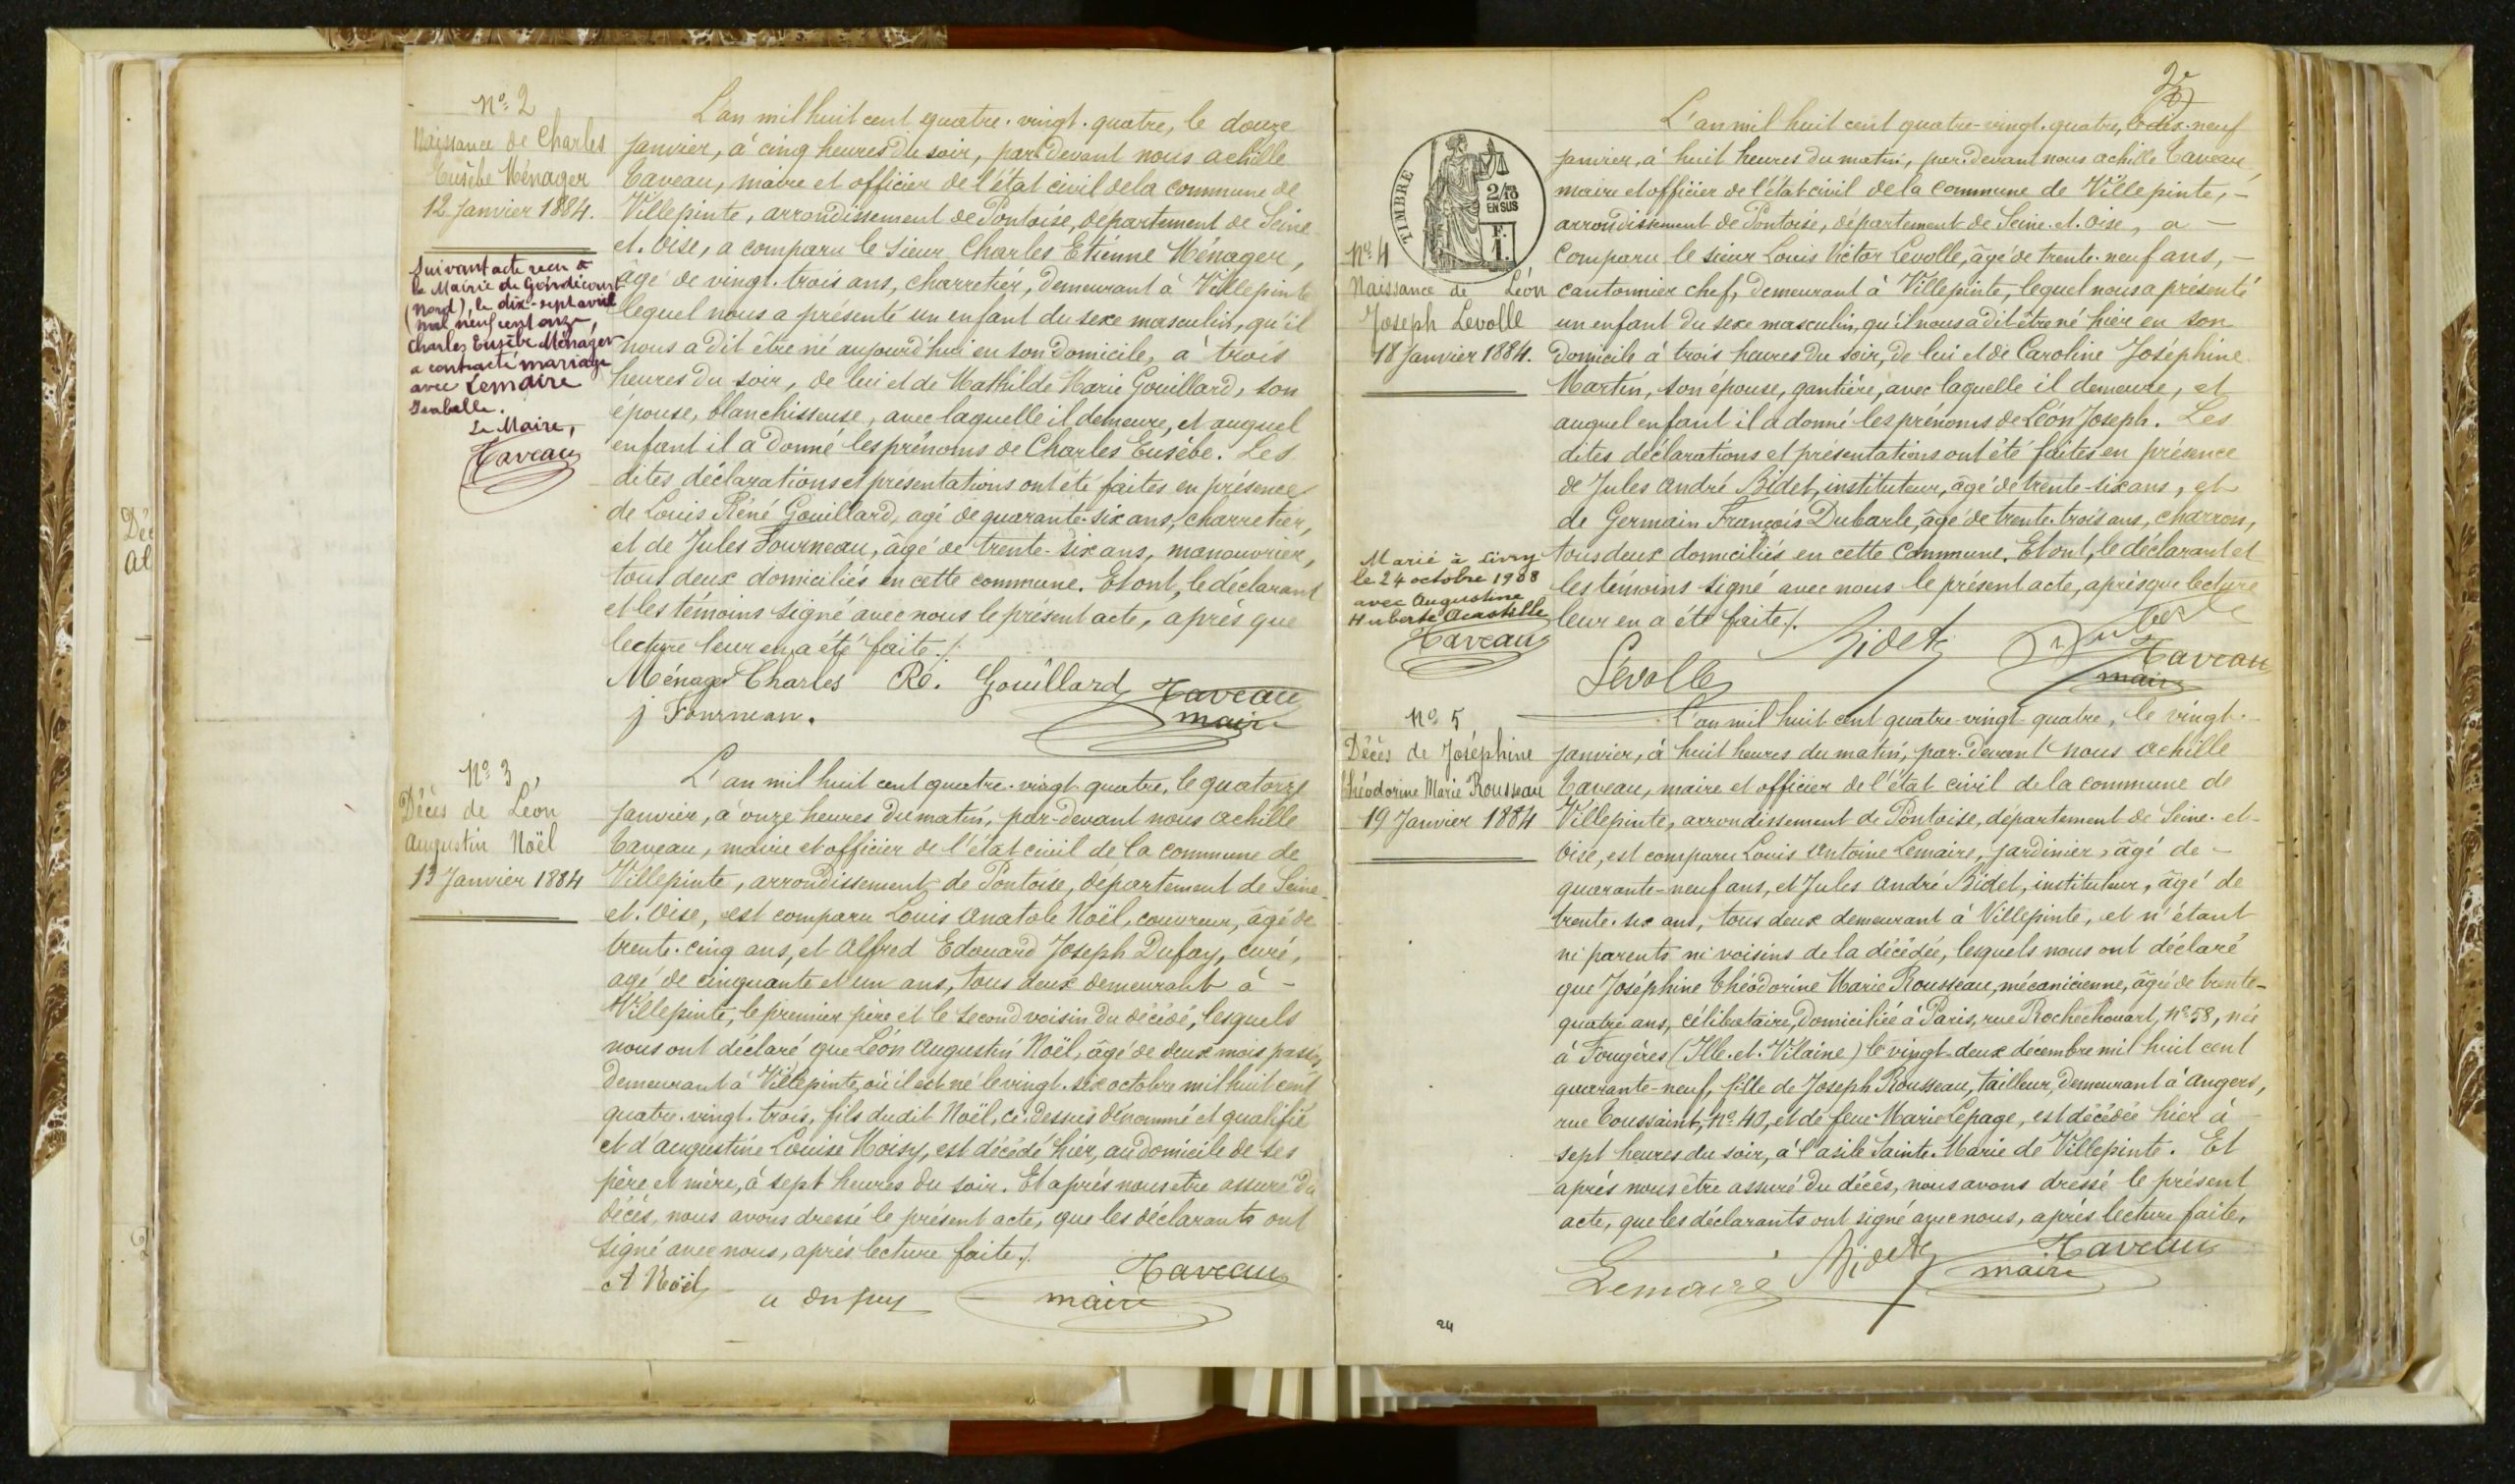 Nº 2
Naissance de Charles
Eusèbe Ménager
12 Janvier 1884.
Suivant acte reçu à
la Mairie de
(Nord), le dix-sept avril
mil neuf cent onze,
Charles Eusèbe Ménager
a contracté mariage
avec Lemaire
Isabelle.
Le Maire,
Taveau
L'an mil huit cent quatre-vingt-quatre, le douze
Janvier, à cinq heures du soir, par devant nous Achille
Taveau, maire et officier de l'état civil de la commune de
Villepinte, arrondissement de Pontoise, département de Seine
et-Oise, a comparu le sieur Charles Etienne Ménager,
âgé de vingt-trois ans, charretier, demeurant à Villepinte
lequel nous a présenté un enfant du sexe masculin, qu'il
nous a dit être né aujourd'hui en son domicile, à trois
heures du soir, de lui et de Mathilde Marie Gouillard, son
épouse, blanchisseuse, avec laquelle il demeure, et auquel
enfant il a donné les prénoms de Charles Eusèbe. Les
dites déclarations et présentations ont été faites en présence
de Louis Réné Gouillard, agé de quarante-six ans, charretier,
et de Jules Fourneau, âgé de trente-six ans, manouvrier,
tous deux domiciliés en cette commune. Et ont, le déclarant
et les témoins signé avec nous le présent acte, après que
lecture leur en a été faite ./.
Ménager Charles Ré. Gouillard Taveau
j Fourneau. maire
Nº 3
Décès de Léon
Augustin Noël
13 Janvier 1884
L'an mil huit cent quatre-vingt-quatre, le quatorze
Janvier, à onze heures du matin, par-devant nous Achille
Taveau, maire et officier de l'état civil de la commune de
Villepinte, arrondissement de Pontoise, département de Seine
et-Oise, est comparu Louis Anatole Noël, couvreur, âgé de
trente-cinq ans, et Alfred Edouard Joseph Dufay, curé,
agé de cinquante et un ans, tous deux demeurant à -
Villepinte, le premier père et le second voisin du décédé, lesquels
nous ont déclaré que Léon Augustin Noël, âgé de deux mois passés,
demeurant à Villepinte, où il est né le vingt-six octobre mil huit cent
quatre-vingt-trois, fils dudit Noël, ci-dessus dénommé et qualifié
et d'Augustine Louise Moisy, est décédé hier, au domicile de ses
père et mère, à sept heures du soir. Et après nous etre assuré du
décès, nous avons dressé le présent acte, que les déclarants ont
signé avec nous, après lecture faite ./.
A Noël Taveau
a Dufay maire
2e
Nº 4
TIMBRE
2/10
EN SUS
F.
1.
Naissance de Léon
Joseph Levolle
18 Janvier 1884.
Marié à Livry
le 24 octobre 1908
avec Augustine
Huberte
Taveau
L'an mil huit cent quatre-vingt-quatre, le dix-neuf
Janvier, à huit heures du matin, par-devant nous Achille Taveau,
maire et officier de l'état civil de la commune de Villepinte, -
arrondissement de Pontoise, département de Seine-et-Oise, a -
comparu le sieur Louis Victor Levolle, âgé de trente-neuf ans, -
cantonnier chef, demeurant à Villepinte, lequel nous a présenté
un enfant du sexe masculin, qu'il nous a dit être né hier en son
domicile à trois heures du soir, de lui et de Caroline Joséphine
Martin, son épouse, gantière, avec laquelle il demeure, et
auquel enfant il a donné les prénoms de Léon Joseph. Les
dites déclarations et présentations ont été faites en présence
de Jules André Bidet, instituteur, âgé de trente-six ans, et
de Germain François Dubarle, âgé de trente-trois ans, charron,
tous deux domiciliés en cette commune. Et ont, le déclarant et
les témoins signé avec nous le présent acte, après que lecture
leur en a été faite ./.
Levolle Bidet Dubarle Taveau
maire
Nº 5
Décès de Joséphine
Théodorine Marie Rousseau
19 Janvier 1884
L'an mil huit cent quatre-vingt-quatre, le vingt-
Janvier, à huit heures du matin, par-devant nous Achille
Taveau, maire et officier de l'état civil de la commune de
Villepinte, arrondissement de Pontoise, département de Seine-et-
Oise, est comparu Louis Antoine Lemaire, jardinier, âgé de -
quarante-neuf ans, et Jules André Bidet, instituteur, âgé de
trente-six ans, tous deux demeurant à Villepinte, et n'étant
ni parents ni voisins de la décédée, lesquels nous ont déclaré
que Joséphine Théodorine Marie Rousseau, mécanicienne, âgée de trente-
quatre ans, célibataire, domiciliée à Paris, rue Rochechouart, Nº 58, née
à Fougères (Ille-et-Vilaine) le vingt-deux décembre mil huit cent
quarante-neuf, fille de Joseph Rousseau, tailleur, demeurant à Angers,
rue Toussaint, Nº 40, et de feue Marie Lepage, est décédée hier à -
sept heures du soir, à l'asile Sainte-Marie de Villepinte. Et
après nous être assuré du décès, nous avons dressé le présent
acte, que les déclarants ont signé avec nous, après lecture faite.
Lemaire Bidet Taveau
maire
24